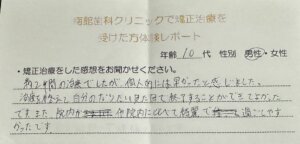 南館歯科クリニックで矯正治療を
受けた方体験レポート
年齢 10 代 性別 男性・女性
・矯正治療をした感想をお聞かせください。
約2年間の治療でしたが、個人的には早かったと感じました。
治療を終えて自分のなりたい見た目で終了することができてよかった
です。また、院内が 他院内に比べて綺麗で 過ごしやす
かったです